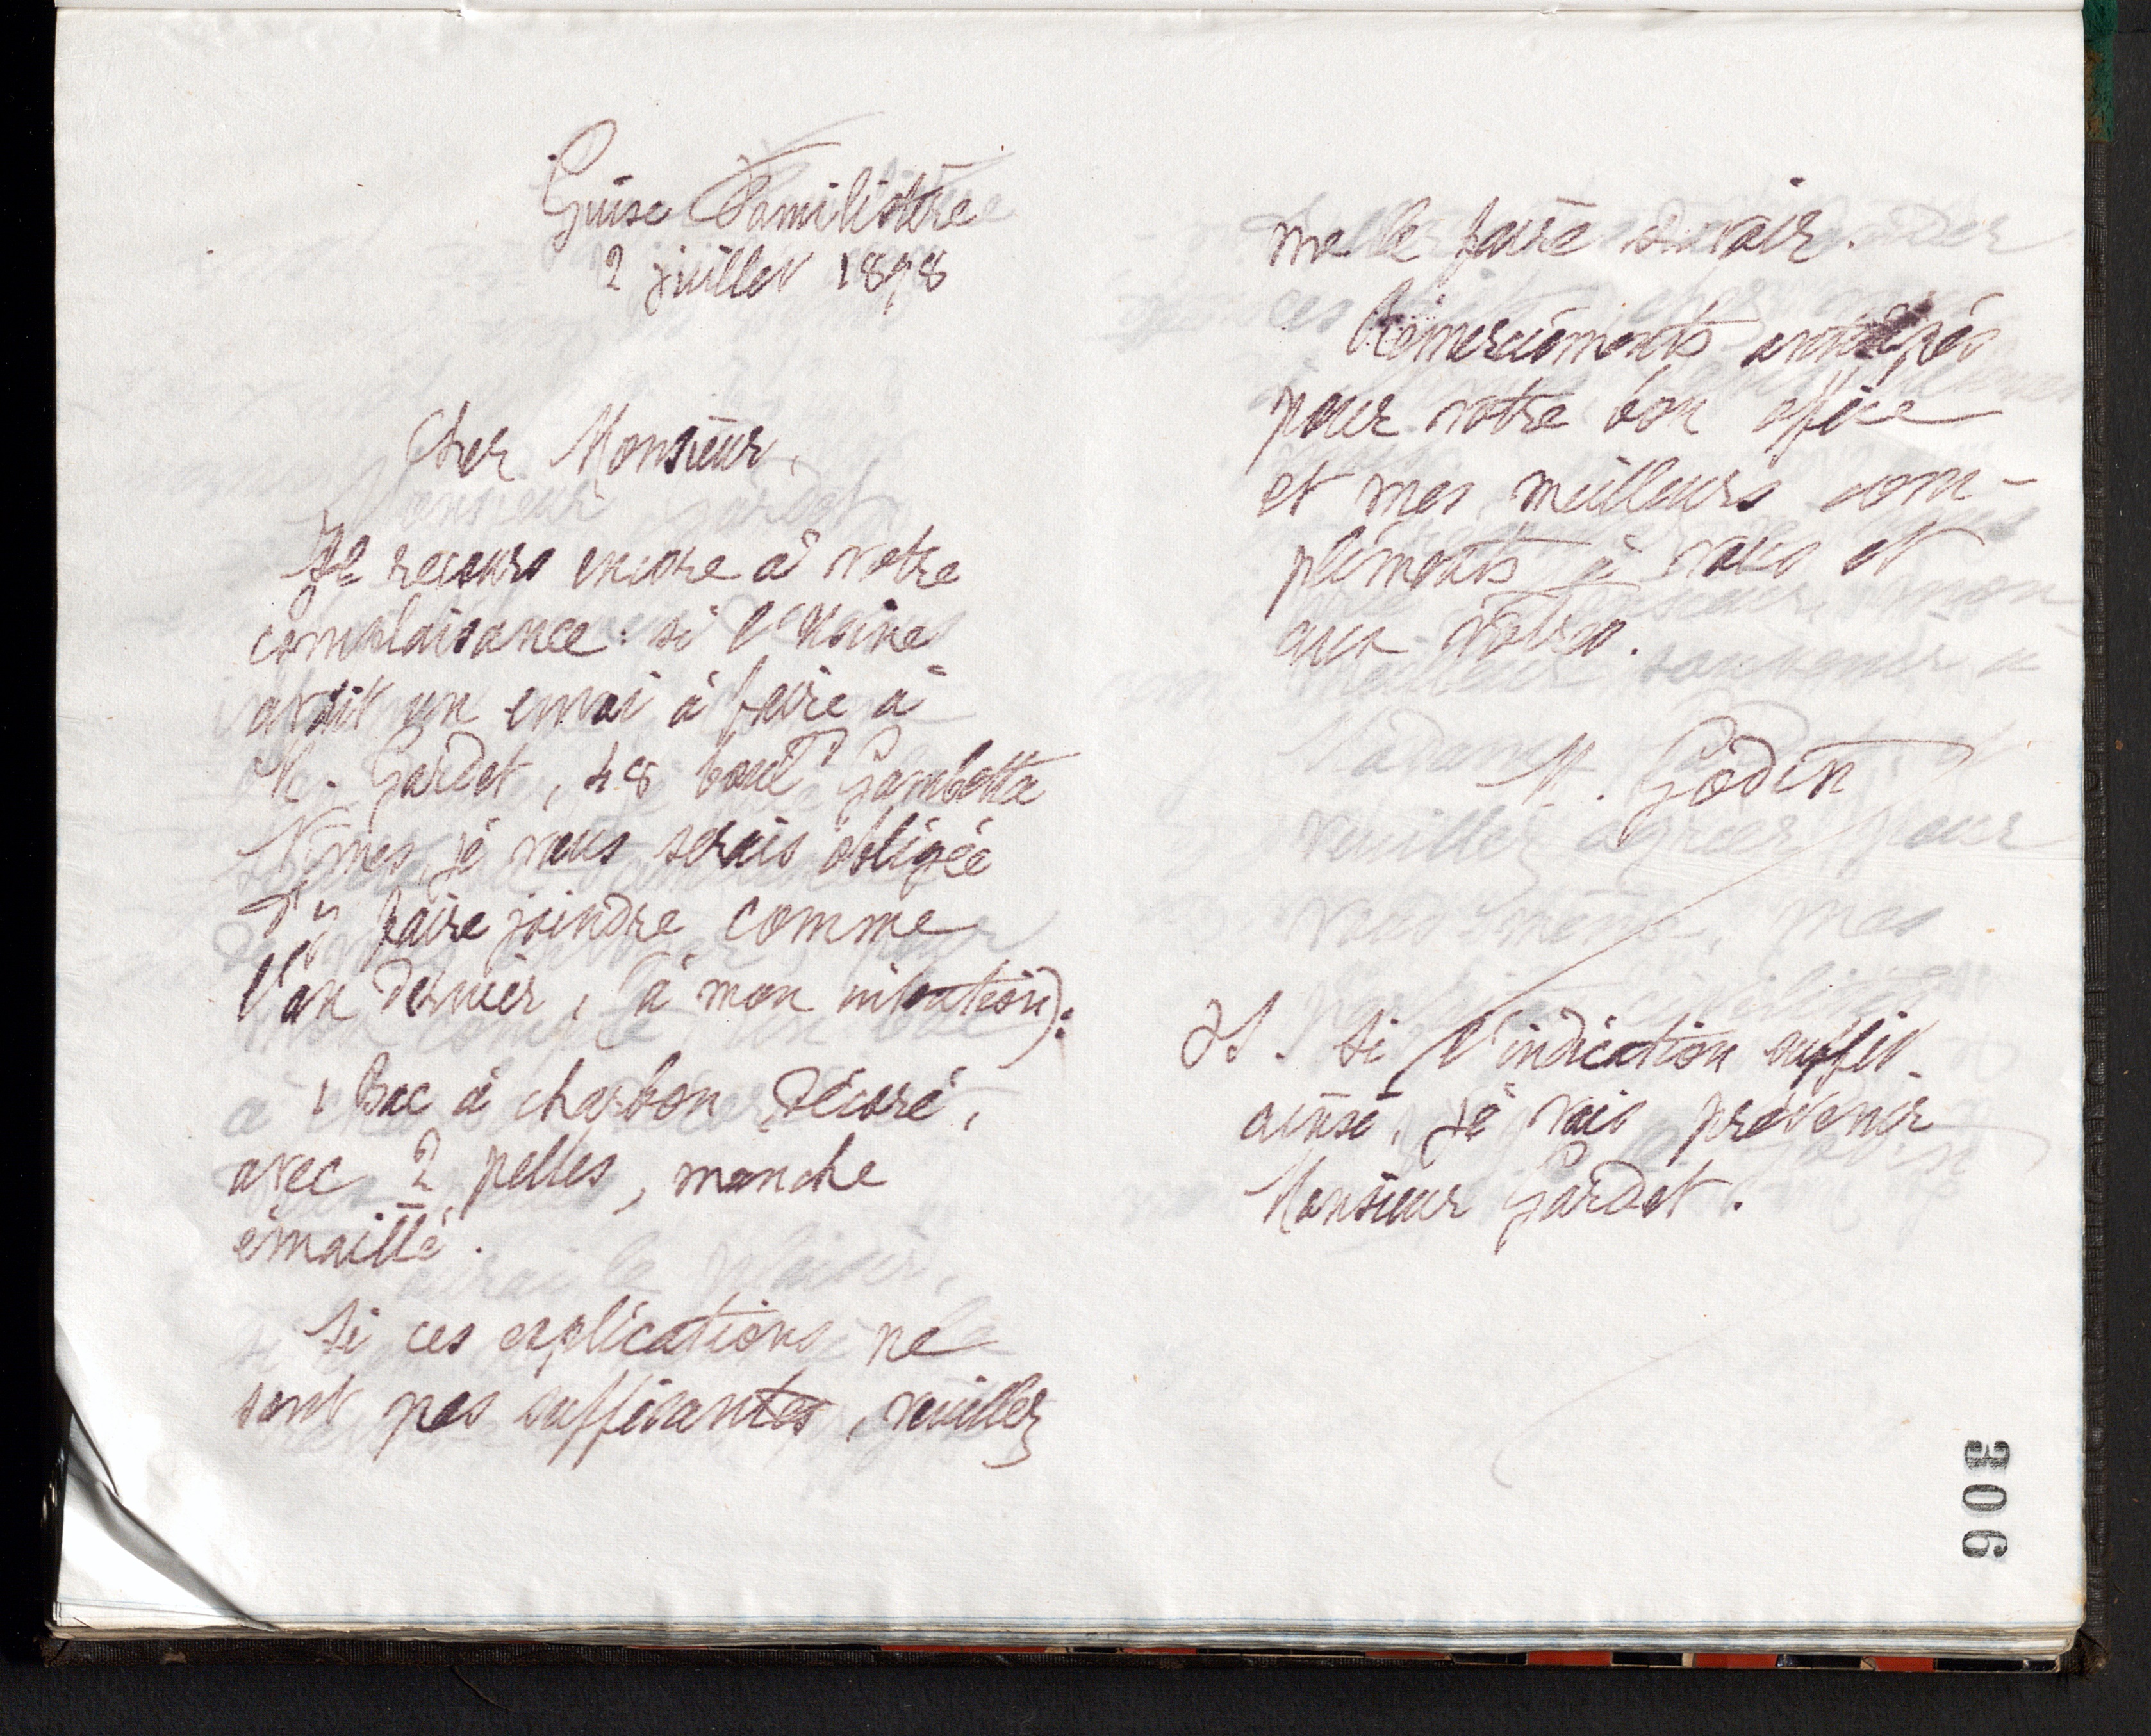 Guise Familistère
2 juillet 1898
Cher Monsieur,
Je recours encore à votre
complaisance : si l'Usine
avait un envoi à faire à
M. Gardet, 48 boul^d Gambetta
Nîmes, je vous serais obligée
d'y faire joindre comme
l'an dernier, (à mon intention) :
1 Bac à charbon décoré,
avec 2 pelles, manche
émaillé.
Si ces explications ne
sont pas suffisantes, veuillez
me le faire savoir.
Remerciements anticipés
pour votre bon office
et mes meilleurs com-
pliments à vous et
aux vôtres.
M. Godin
PS. Si l'indication suffit
ainsi, je vais prévenir
Monsieur Gardet.
306